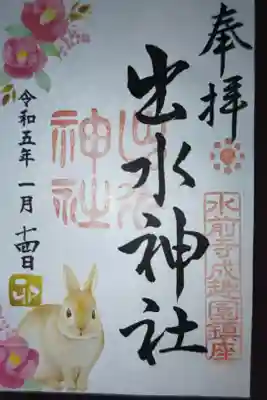 奉拝
水前寺成趣園鎮座
出水神社
出水神社
令和五年一月十四日
卯